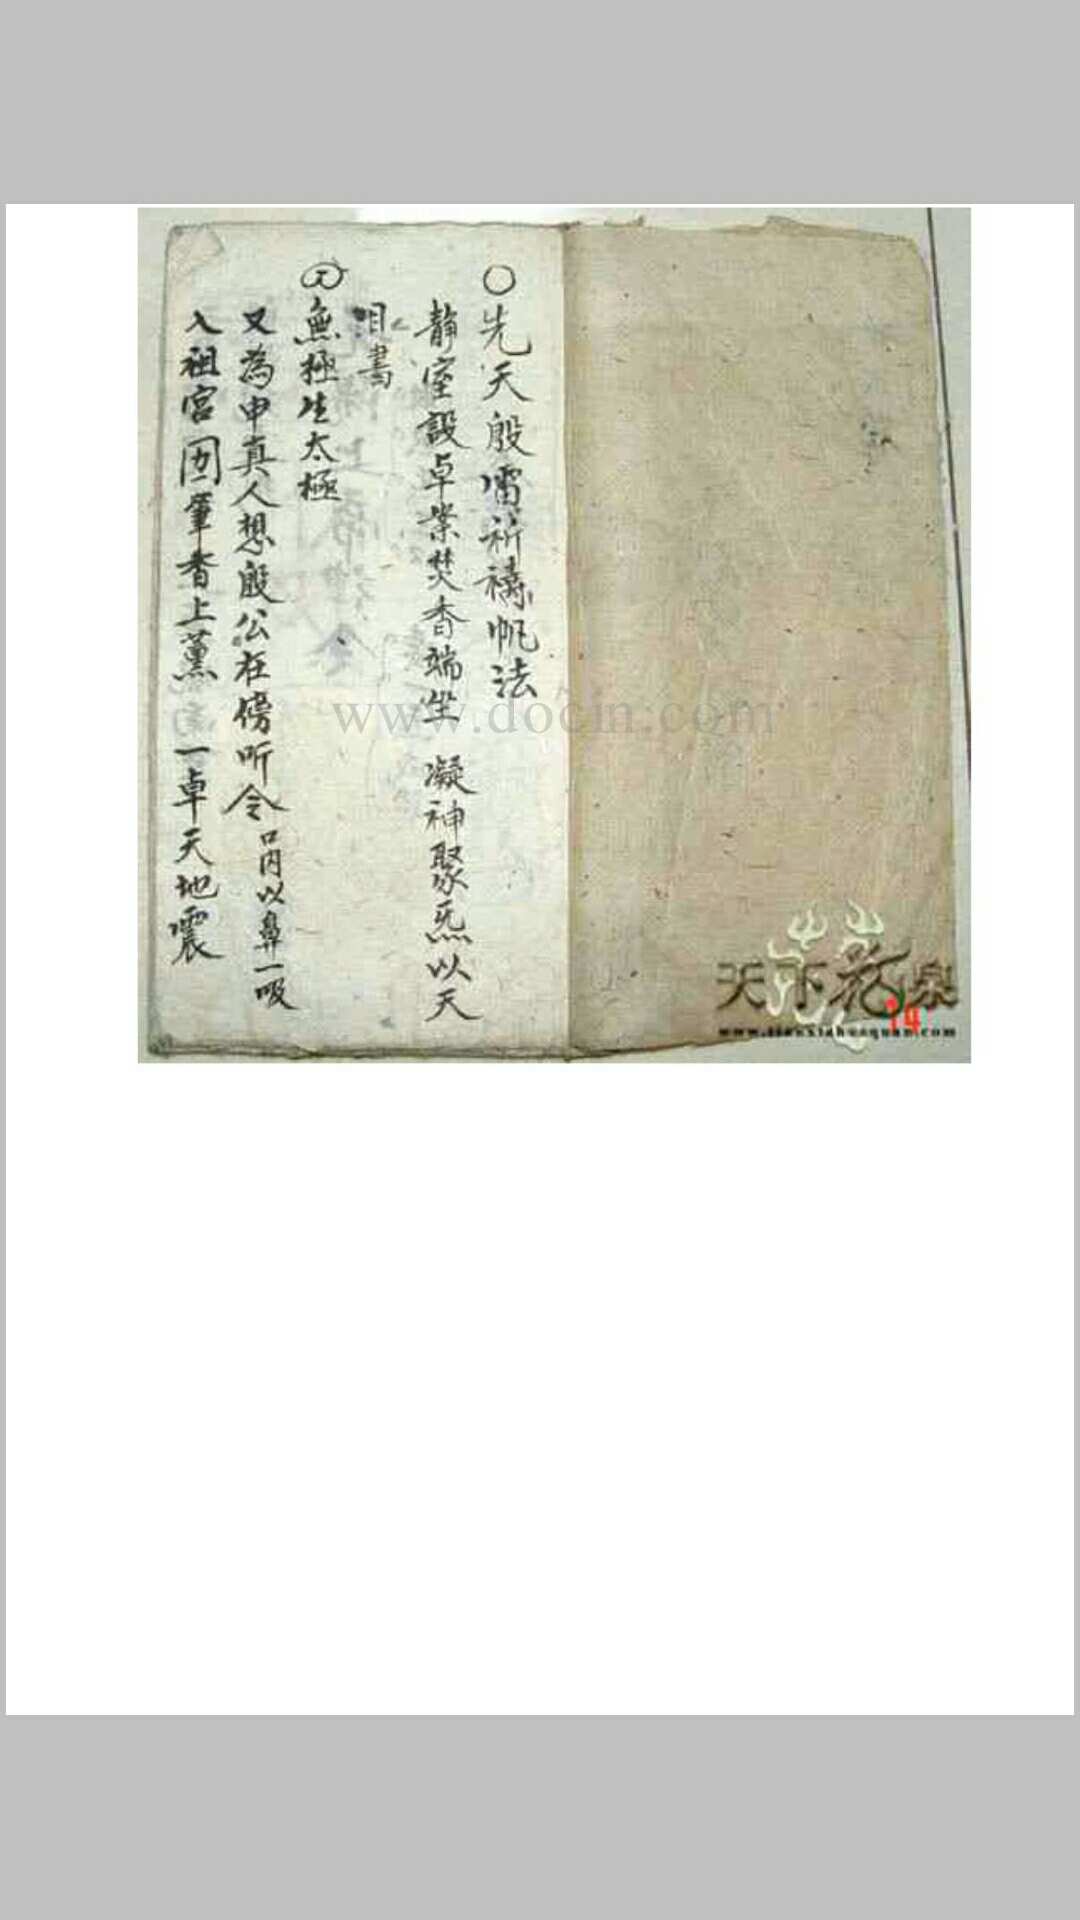 〇先天殷雷祈禱帆法
靜室設卓業焚香端坐 凝神聚炁以天
目書
無極生太極
又為申真人想殷公在傍听令 口内以鼻一吸
入祖宮 筆香上薰 一卓天地震
www.docin.com
天下花泉
14
www.tianxiahuaquan.com